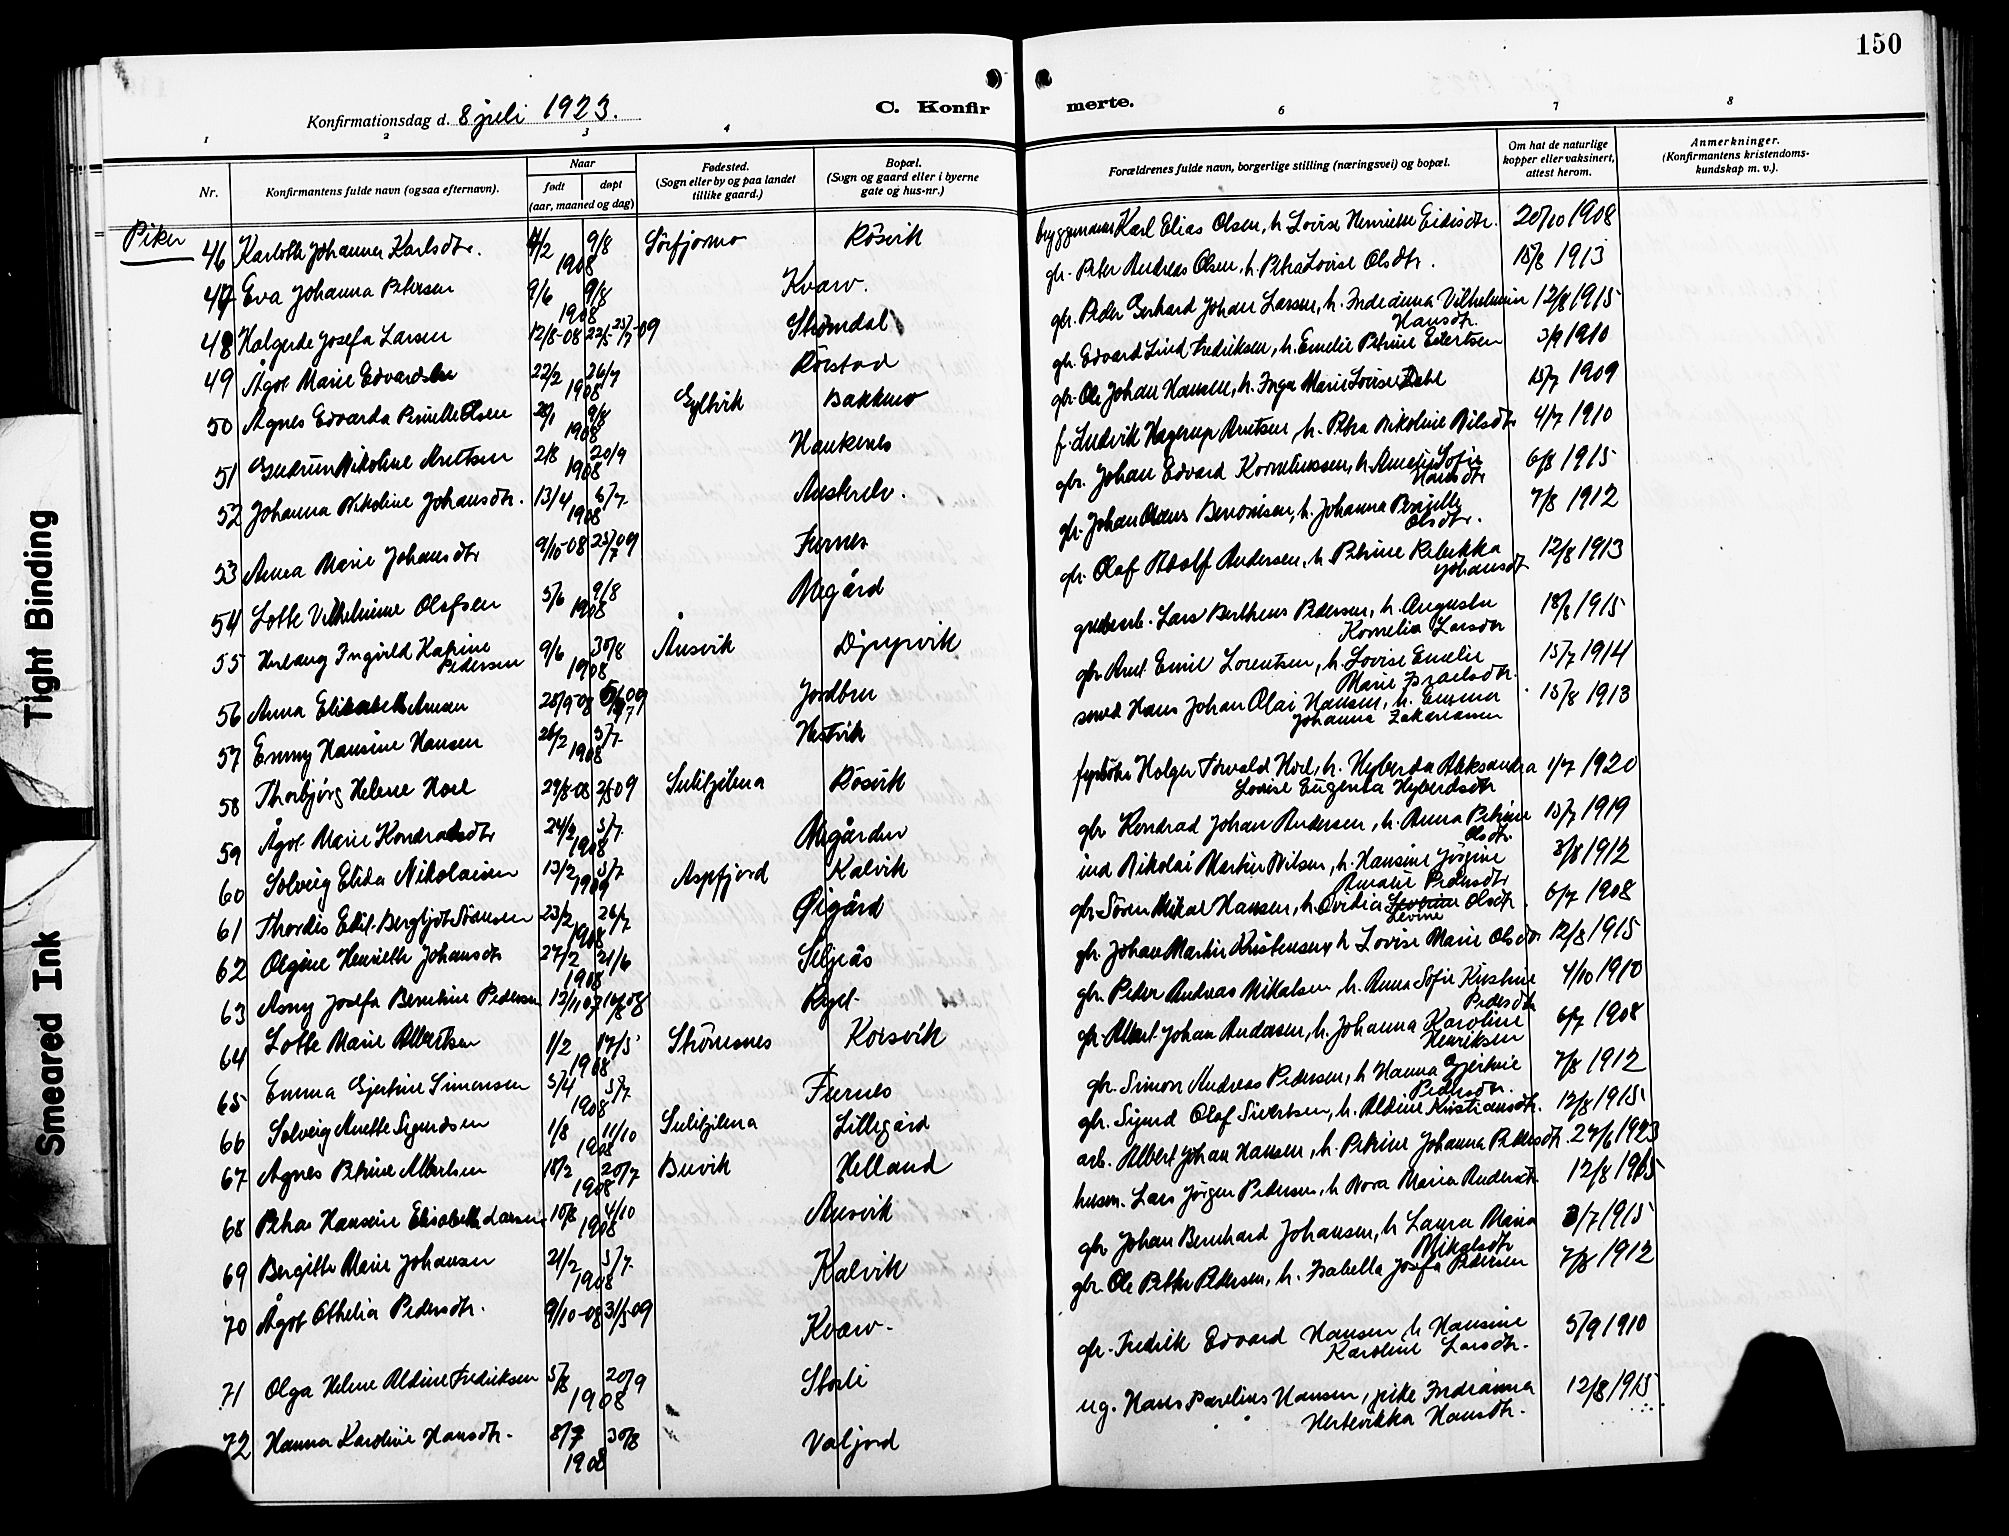 150
Konfirmationsdag d. 8 juli 1923.
C. Konfir
merte.
1 2 3 4 6 7 8
Nr.
Konfirmantens fulde navn (ogsaa efternavn).
Naar
født døpt
(aar, maaned og dag)
Fødested.
(Sogn eller by og paa landet
tillike gaard.)
Bopæl.
(Sogn og gaard eller i byerne
gate og hus-nr.)
Forældrenes fulde navn, borgerlige stilling (næringsvei) og bopæl.
Om hat de naturlige
kopper eller vaksinert,
attest herom.
Anmerkninger.
(Konfirmantens kristendoms-
kundskap m. v.).
Piker
46 Karlotte Johanna Karlsdtr. 9/8 1908 Sörfjormo Rösvik Karl Elias Olsen, h. Lovise Henriette Eidisdtr. 20/10 1908
47 Eva Johanna Petersen 9/6 9/8 1908 Kvarv. gbr. Peter Andreas Olsen, h. Petra Lovise Olsdtr. 15/8 1913
48 Halgerde Josefa Larsen 12/8-08 Strömdal gbr. Peder Gerhard Johan Larsen, h. Indianna Vilhelmine Hansdtr. 12/8 1915
49 Ågot Marie Edvardsen 22/2 26/7 1908 Rörstad gbr. Edvard Lind Fredriksen, h. Emelie Petrine Evertsen 3/9 1910
50 Agnes Edvarda Pernille Olsen 9/8 1908 Gyltvik Bakkmo gbr. Ole Johan Hansen, h. Inga Marie Lovise Dahl 15/7 1909
51 Gudrun Nikoline Arntsen 2/8 20/9 1908 Haukenes f. Ludvik Hagerup Arntsen, h. Petra Nikoline Nilsdtr 4/7 1910
52 Johanna Nikoline Johansdtr. 13/4 5/7 1908 Austerelv. gbr. Johan Edvard Korneliussen, h. Amalie Sofie Hansdtr 6/8 1915
53 Anna Marie Johansdtr 9/10-08 25/7 09 Furnes gbr. Johan Claus Benonisen, h. Johanna Pernille Olsdtr. 7/8 1912
54 Lotte Vilhelmine Olafsen 5/6 9/8 1908 Megård gbr. Olaf Adolf Andersen, h. Petrine Rebekka Johansdt 12/8 1913
55 Herlaug Ingvild Katrine Pedersen 9/6 30/8 1908 Ånsvik Djupvik Lars Bertheus Pedersen, h. Augusta Kornelia Larsdtr 18/8 1915
56 Anna Elisabeth Arnsen 28/9-08 Jordbru gbr. Arnt Emil Lorentsen, h. Lovise Emelie Marie Israelsdtr. 15/7 1914
57 Emmy Hansine Hansen 26/2 5/7 1908 Hestvik smed Hans Johan Olai Hansen, h. Emma Johanna Zakariassen 15/8 1913
58 Thorbjørg Helene Hoel 29/8-08 Sulitjelma Rösvik fyrböter Holger Torvald Hoel, h. Hyberda Aleksandra Lovise Eugenia Hyberdsdtr 1/7 1920
59 Ågot Marie Kondradsdtr 24/2 5/7 1908 Megården gbr Kondrad Johan Andersen, h. Anna Petrine Olsdtr. 15/7 1919
60 Solveig Elida Nikolaisen 13/2 5/7 Aspfjord Kalvik ind Nikolai Martin Nilsen, h. Hansine Jörgine Amalie Pedersdtr 3/8 1912
61 Thordis Edel Bergljot Sörensen 23/2 26/7 1908 Øigård gbr Sören Mikal Hansen, h. Ovidia Levine Olsdtr. 6/7 1908
62 Olgine Henriette Johansdtr 27/2 21/6 1908 Siljeås gbr. Johan Martin Kristensen, h Lovise Marie Olsdtr 12/8 1915
63 Asny Josefa Berntine Pedersen 13/11 07 Rygel. gbr. Peder Andreas Mikalsen, h. Anna Sofie Kristine Pedersdtr 4/10 1910
64 Lotte Marie Albertsen 1/2 17/5 1908 Strömsnes Korsvik gbr. Albert Johan Andersen, h. Johanna Karoline Henriksen 6/7 1908
65 Emma Gjertine Simonsen 5/4 5/7 1908 Furnes gbr. Simon Andreas Pedersen, h Hanna Gjertine Pedersdtr. 7/8 1912
66 Solveig Anette Sigurdsen 1/8 11/10 1908 Sulitjelma Lillegård gbr. Sigurd Olaf Sivertsen, h. Aldine Kristiansdtr. 12/8 1915
67 Agnes Petrine Albertsen 18/2 20/7 1908 Buvik Helland arb. Albert Johan Hansen, h. Petrine Johanna Pedersdtr. 27/6 1923
68 Petra Hansine Elisabeth Larsen 10/8 4/10 1908 Ånsvik husm. Lars Jörgen Pedersen, h Nora Maria Andersdtr 12/8 1915
69 Bergitte Marie Johansen 21/2 5/7 1908 Kalvik gbr Johan Bernhard Johansen, h Laura Maria Mikalsdtr 3/7 1915
70 Ågot Othelia Pedersdtr. 9/10-08 31/5 09 Kvarv. gbr. Ole Petter Pedersen, h. Isabella Josefa Pedersen 7/8 1912
71 Olga Helene Aldine Fredriksen 5/8 20/9 1908 Storli gbr. Fredrik Edvard Hansen, h Hansine Karoline Larsdtr. 5/9 1910
72 Hanna Karoline Hansdtr. 8/7 30/8 1908 Valjord ug. Hans Parelius Hansen, pike Indianna Hertevikka Hansdtr. 12/8 1915
Tight Binding
Smeared Ink